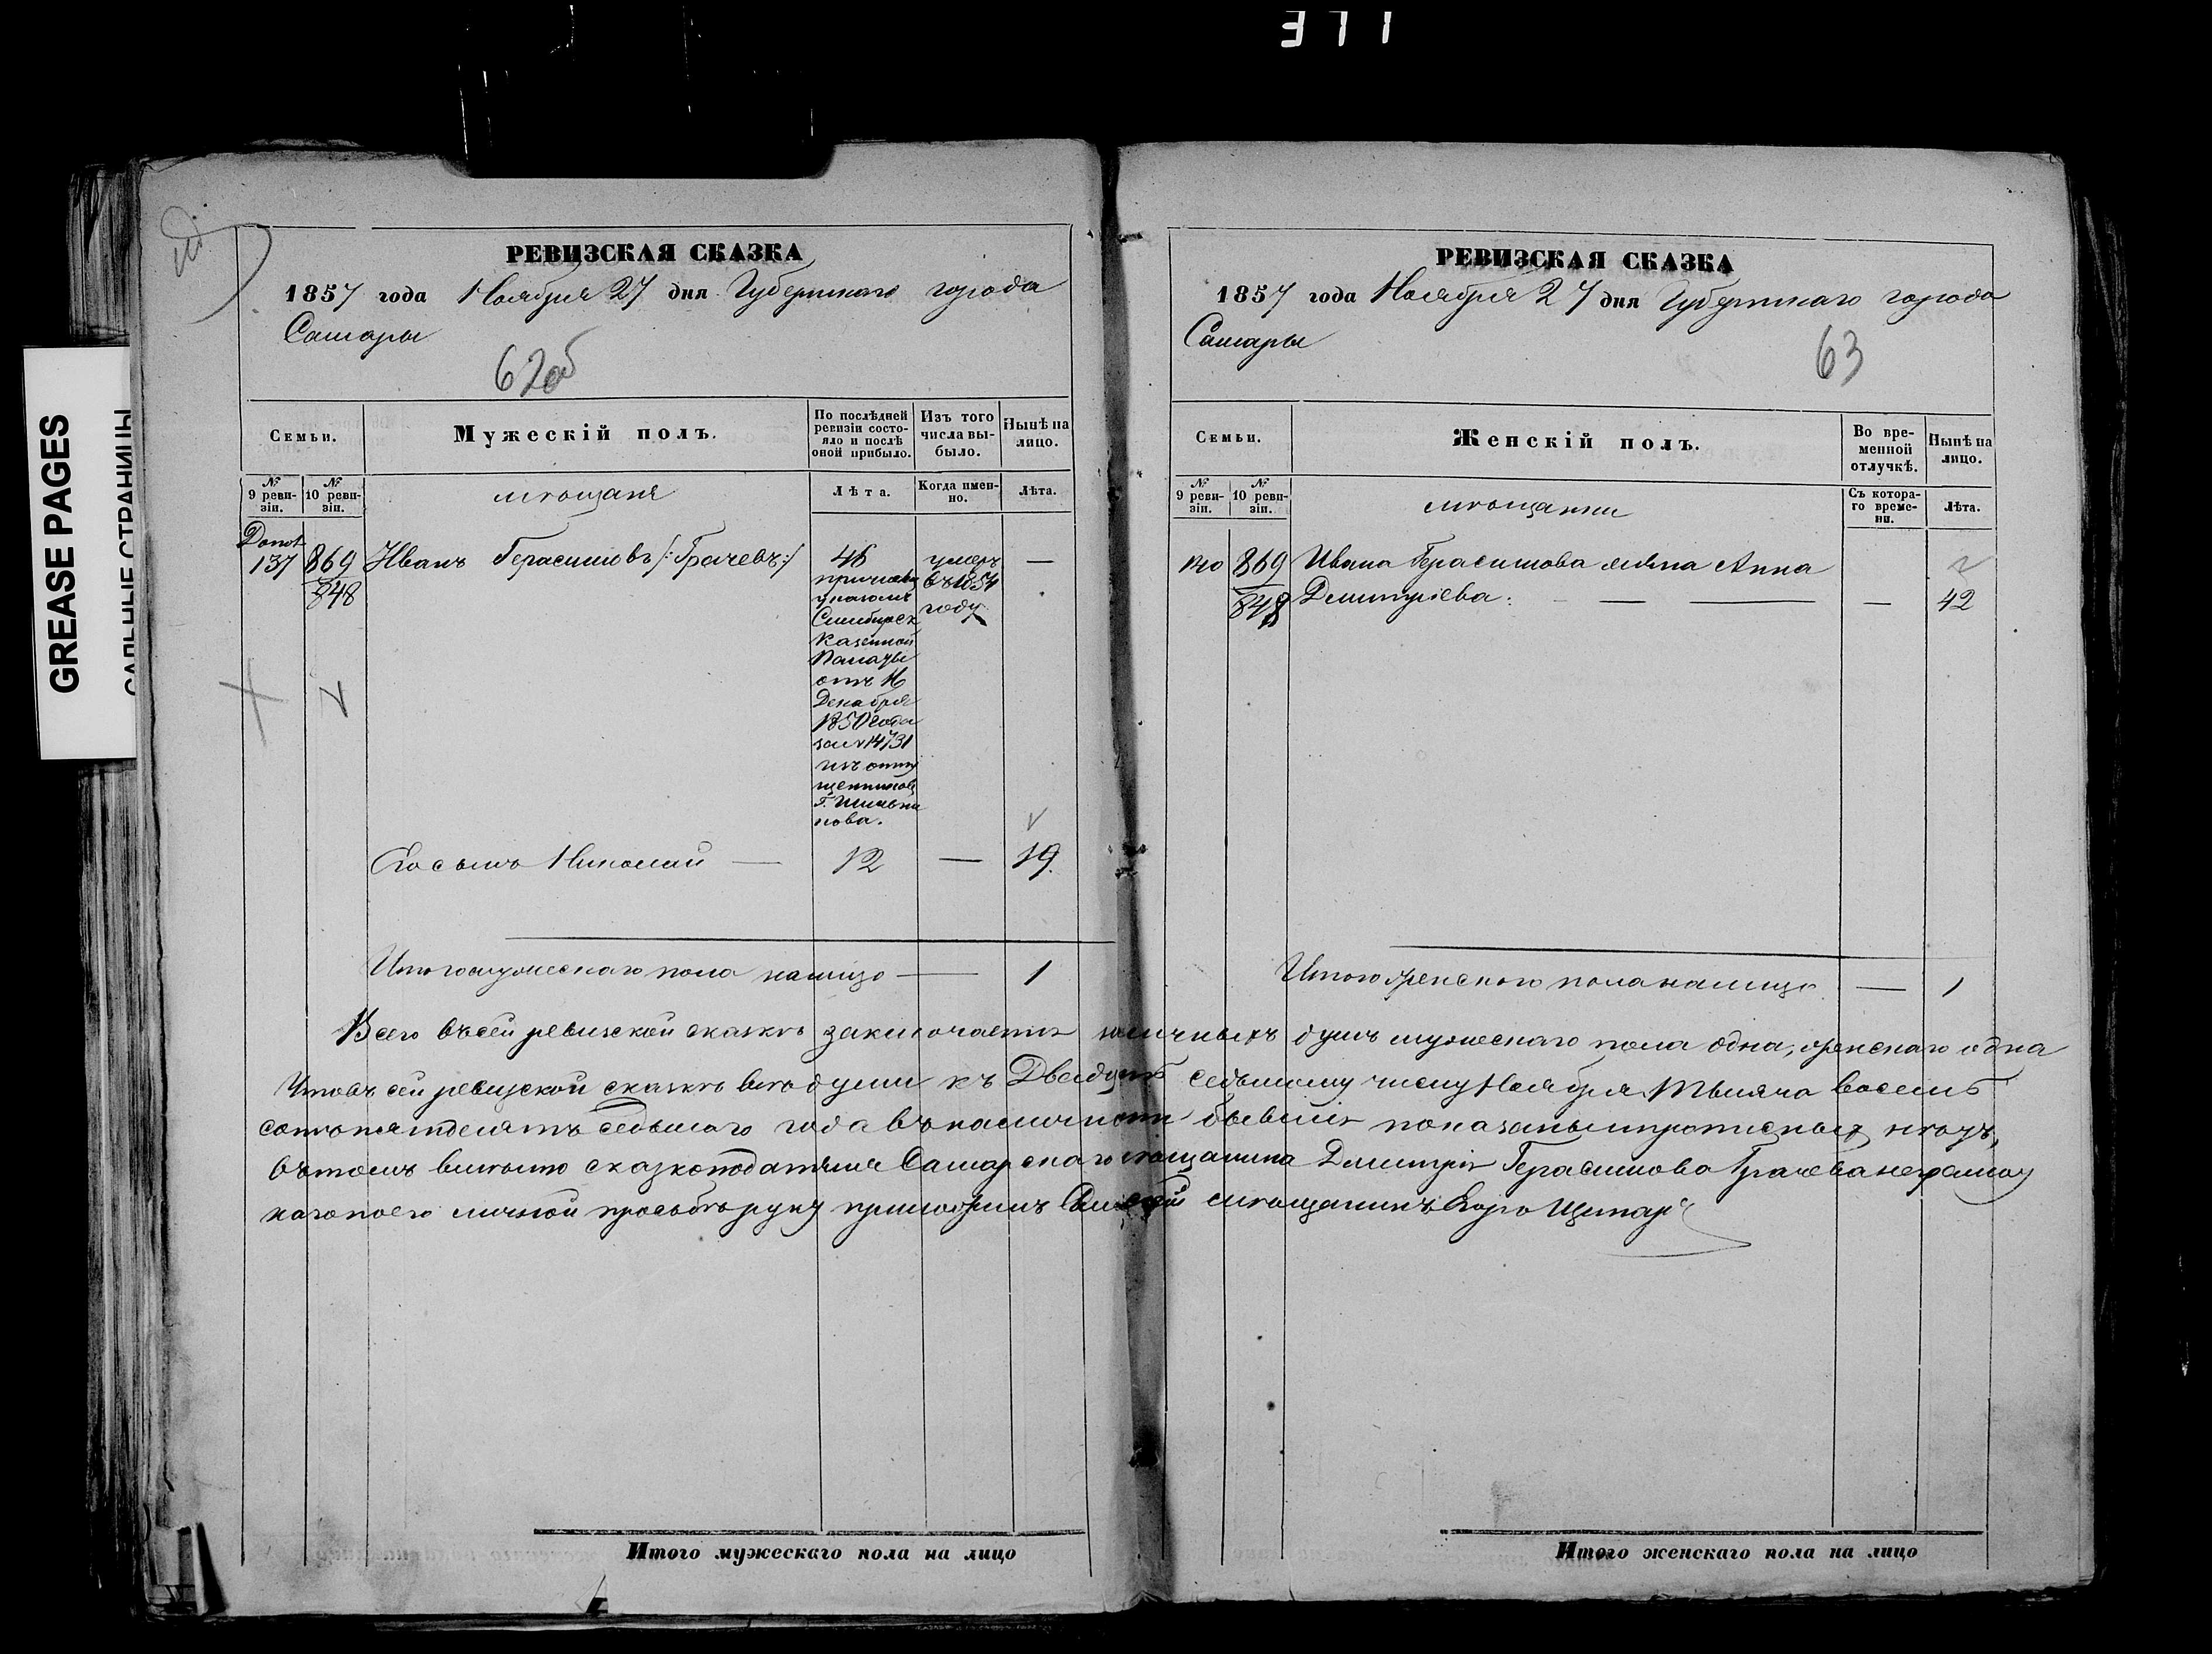 371
GREASE PAGES
САЛЬНЫЕ СТРАНИЦЫ
РЕВИЗСКАЯ СКАЗКА
1857 года Ноября 27 дня Губернскаго города
Самары
62об
Семьи.
Мужескій полъ.
По послѣдней ревизіи состояло и послѣ оной прибыло.
Изъ того числа выбыло.
Нынѣ на лицо.
№ 9 ревизіи.
№ 10 ревизіи.
мѣщане
Лѣта.
Когда именно.
Лѣта.
137
869
848
Иванъ Герасимовъ /:Грачевъ:/
46
умеръ
въ 1854
году
—
указомъ
Симбирск
Казенной
Палаты
отъ 11
Декабря
1850 года
за № 14731
изъ отпу
щенников
Его сынъ Николай —
12
—
19.
Итого мужескаго пола налицо —
1
РЕВИЗСКАЯ СКАЗКА
1857 года Ноября 27 дня Губернскаго города
Самары
63
Семьи.
Женскій полъ.
Во временной отлучкѣ.
Нынѣ на лицо.
№ 9 ревизіи.
№ 10 ревизіи.
мѣщанки
Съ котораго времени.
Лѣта.
140
869
848
Ивана Герасимова жена Анна
Дмитріева: — —
—
42
Итого женскаго пола налицо
—
1
Всего въ сей ревизской сказкѣ заключается наличныхъ душъ мужескаго пола одна, женскаго одна
Что въ сей ревизской сказкѣ все души къ Двадцать седьмому числу Ноября Тысяча восемь
сотъ пятдесятъ седьмаго года въ наличности бывшія показаны и прописныхъ нѣтъ,
въ томъ вмѣсто сказкоподателя Самарскаго мѣщанина Дмитрія Герасимова Грачева неграмот
наго по его личной прозьбѣ руку приложилъ мѣщанинъ
Итого мужескаго пола на лицо
Итого женскаго пола на лицо